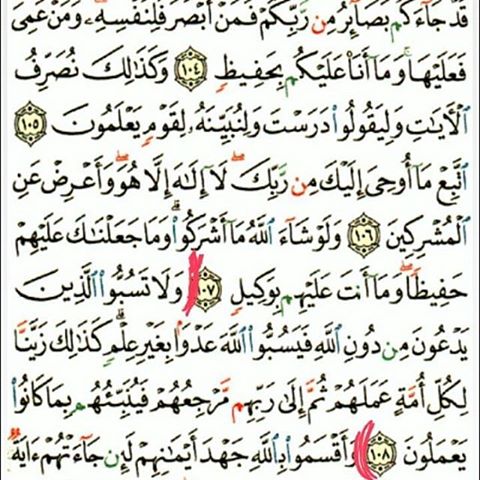 قَدْ جَآءَكُم بَصَآئِرُ مِن رَّبِّكُمْ فَمَنْ أَبْصَرَ فَلِنَفْسِهِۦ وَمَنْ عَمِىَ
فَعَلَيْهَا وَمَآ أَنَا۠ عَلَيْكُم بِحَفِيظٍ ١٠٤ وَكَذَٰلِكَ نُصَرِّفُ
ٱلْأَيَٰتِ وَلِيَقُولُوا۟ دَرَسْتَ وَلِنُبَيِّنَهُۥ لِقَوْمٍ يَعْلَمُونَ ١٠٥
ٱتَّبِعْ مَآ أُوحِىَ إِلَيْكَ مِن رَّبِّكَ ۖ لَآ إِلَٰهَ إِلَّا هُوَ ۖ وَأَعْرِضْ عَنِ
ٱلْمُشْرِكِينَ ١٠٦ وَلَوْ شَآءَ ٱللَّهُ مَآ أَشْرَكُوا۟ ۗ وَمَا جَعَلْنَٰكَ عَلَيْهِمْ
حَفِيظًا ۖ وَمَآ أَنتَ عَلَيْهِم بِوَكِيلٍ ١٠٧ وَلَا تَسُبُّوا۟ ٱلَّذِينَ
يَدْعُونَ مِن دُونِ ٱللَّهِ فَيَسُبُّوا۟ ٱللَّهَ عَدْوًۢا بِغَيْرِ عِلْمٍ ۗ كَذَٰلِكَ زَيَّنَّا
لِكُلِّ أُمَّةٍ عَمَلَهُمْ ثُمَّ إِلَىٰ رَبِّهِم مَّرْجِعُهُمْ فَيُنَبِّئُهُم بِمَا كَانُوا۟
يَعْمَلُونَ ١٠٨ وَأَقْسَمُوا۟ بِٱللَّهِ جَهْدَ أَيْمَٰنِهِمْ لَئِن جَآءَتْهُمْ ءَايَةٌ